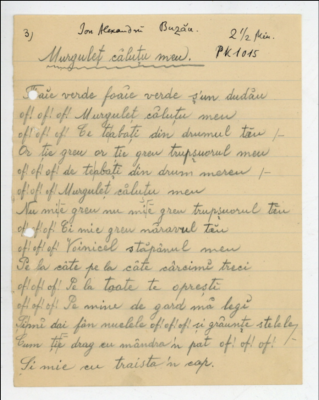 3) Ion Alexandru Buzău. 2 1/2 Min.
PK 1015
Murguleț căluțu meu.
Foaie verde foaie verde s'un dudău
of! of! of! Murguleț căluțu meu
of! of! of! Ce te abați din drumul tău /-
Or ție greu or ție greu trupșuorul meu
of! of! of! de te abați din drum mereu /-
of! of! of! Murguleț căluțu meu
Nu mi-je greu nu mi-je greu trupșuorul tău
of! of! of! Ci mie greu năravul tău
of! of! of! Voinicul stăpânul meu
Pe la câte pe la câte cârcimi treci
of! of! of! Pe la toate te oprești
of! of! of! Pe mine de gard mă legi
Și-mi dai fân nuelele of! of! of! și grăunțe stelele
Cum ție drag cu mândra'n pat of! of! of!
Și mie cu traista'n cap.